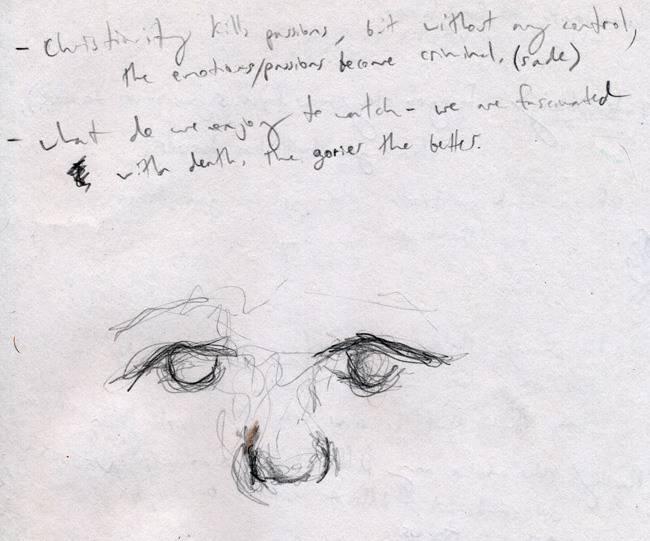 - Christianity kills passions, but without any control,
the emotions/passions become criminal. (sade)
- what do we enjoy to watch - we are fascinated
with death, the gorier the better.